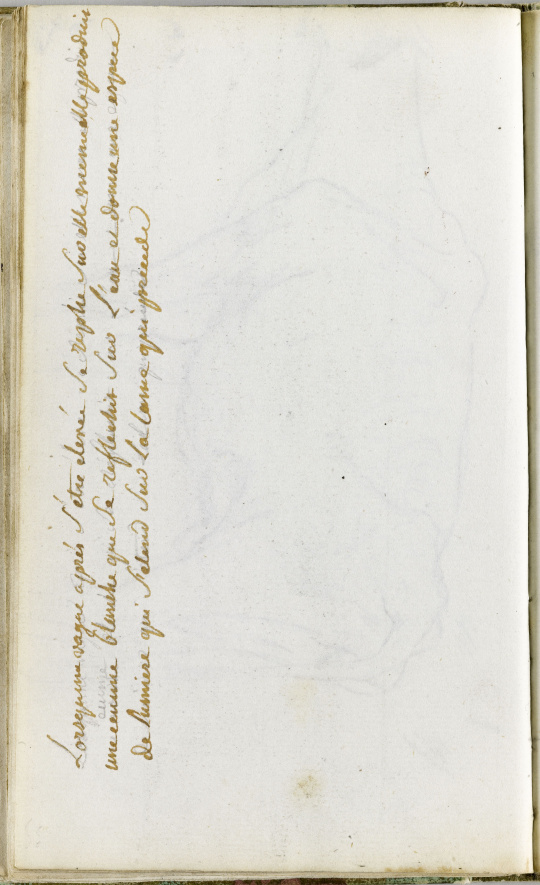 Lorsqu'une vague après s'etre elevée se replie sur elle meme elle produit
une ecume blanche qui se reflechit sur l'eau et donne une espece
de lumiere qui s'etend sur la lame qui precede